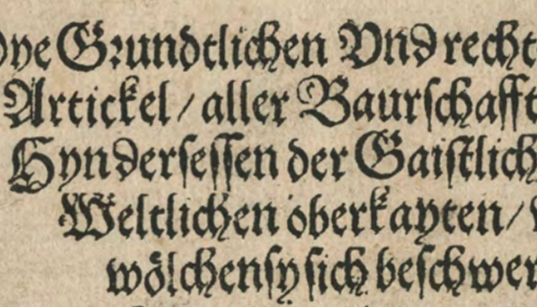 Dye Grundtlichen Vnd recht
Artickel / aller Baurschafft
Hyndersessen der Gaistlich
Weltlichen oberkayten /
wölchen sy sich beschwer